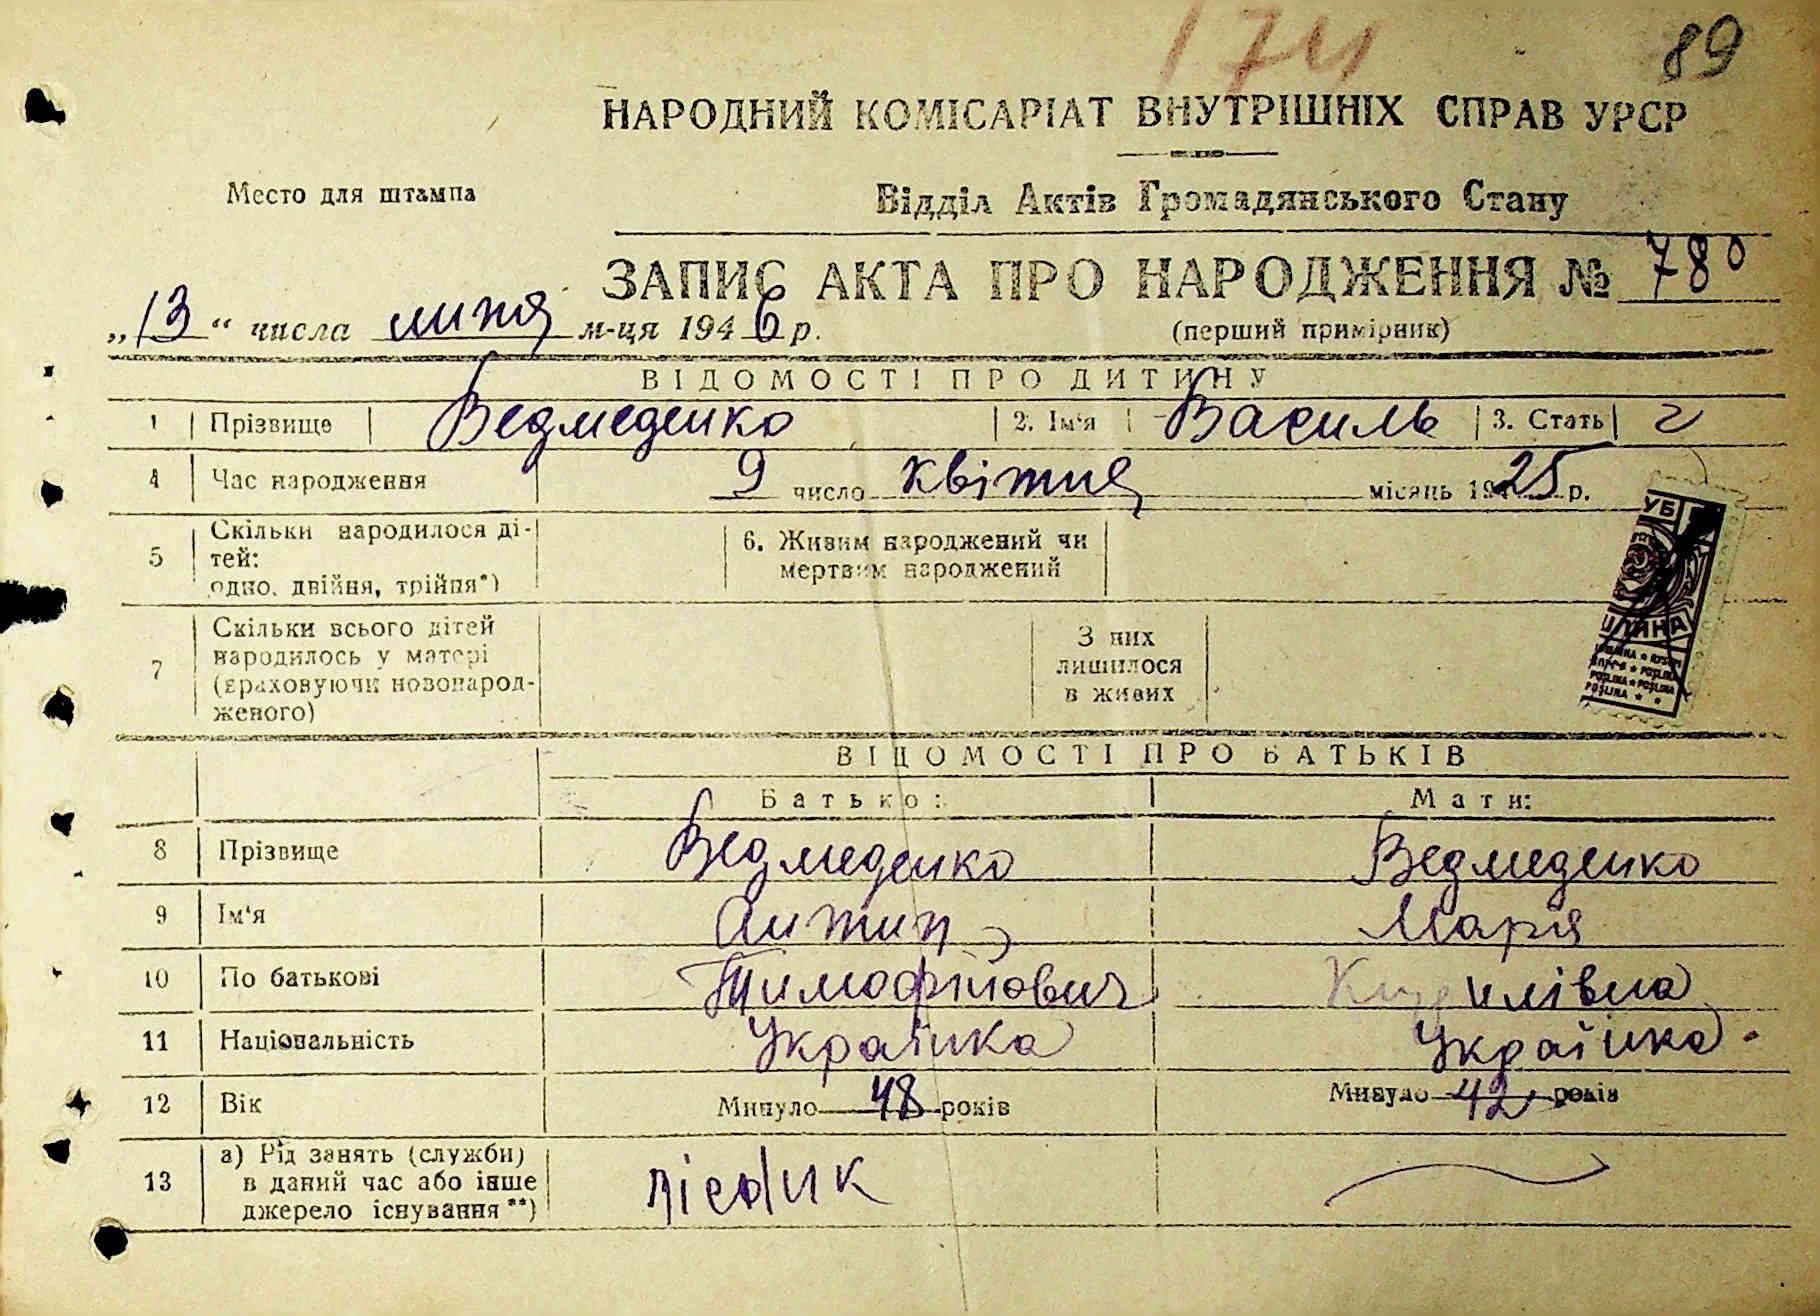 174
89
НАРОДНИЙ КОМІСАРІАТ ВНУТРІШНІХ СПРАВ УРСР
Место для штампа
Відділ Актів Громадянського Стану
ЗАПИС АКТА ПРО НАРОДЖЕННЯ № 780
„13“ числа липня м-ця 1946 р.
(перший примірник)
ВІДОМОСТІ ПРО ДИТИНУ
1 Прізвище Ведмеденко 2. Ім'я Василь 3. Стать ч
4 Час народження 9 число квітня місяць 1925 р.
5 Скільки народилося ді-
тей:
одно, двійня, трійня*)
6. Живим народжений чи
мертвим народжений
7 Скільки всього дітей
народилось у матері
(враховуючи новонарод-
женого)
З них
лишилося
в живих
ВІДОМОСТІ ПРО БАТЬКІВ
Батько: Мати:
8 Прізвище Ведмеденко Ведмеденко
9 Ім'я Антип Марія
10 По батькові Тимофійович
11 Національність Українка Українка
12 Вік Минуло 48 років Минуло 42 років
13 а) Рід занять (служби)
в даний час або інше
джерело існування**)
лісник